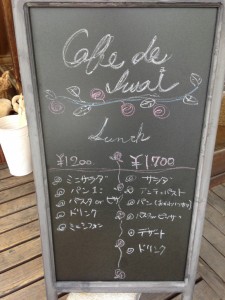 Cafe de
Iwai
Lunch
¥1200
ミニサラダ
パン1コ
パスタ or ピザ
ドリンク
¥1700
サラダ
アンティパスト
パン
パスタ or ピッザ
デザート
ドリンク